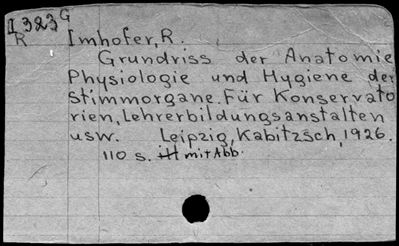 II 323 G
R Imhofer, R.
Grundriss der Anatomie
Physiologie und Hygiene der
Stimmorgane. Für Konservato
rien, Lehrerbildungsanstalten
usw. Leipzig, Kabitzsch, 1926.
110 s. ill mit Abb.